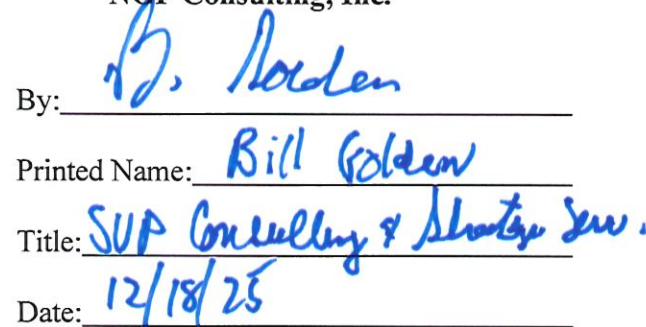 NGP Consulting, Inc.
By: B. Golden
Printed Name: Bill Golden
Title: SVP Consulting & Strategic Serv.
Date: 12/18/25